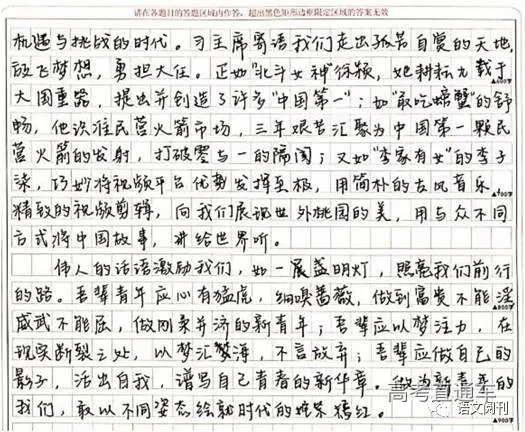 请在各题目的答题区域内作答，超出黑色矩形边框限定区域的答案无效
机遇与挑战的时代。习主席寄语我们走出孤芳自赏的天地，
放飞梦想，勇担大任。正如"北斗女神"徐颖，她耕耘九载于
大国重器，提出并创造了许多"中国第一"；如"敢吃螃蟹"的舒
畅，他深准民营火箭市场，三年艰苦汇聚为中国第一颗民
营火箭的发射，打破零与一的隔阂；又如"李家有女"的李子
柒，巧妙将视频平台优势发挥至极，用简朴的古风音乐，
精致的视频剪辑，向我们展现世外桃园的美，用与众不同
方式将中国故事，讲给世界听。
伟人的话语激励我们，如一展盏明灯，照亮我们前行
的路。吾辈青年应心有猛虎，细嗅蔷薇，做到富贵不能淫
威武不能屈，做刚柔并济的新青年；吾辈应以梦注力，在
现实断裂之处，以梦汇繁海，不言放弃；吾辈应做自己的
影子，活出自我，谱写自己青春的新华章。做为新青年的
我们，敢以不同姿态给新时代的
高考直通车
语文阅刊